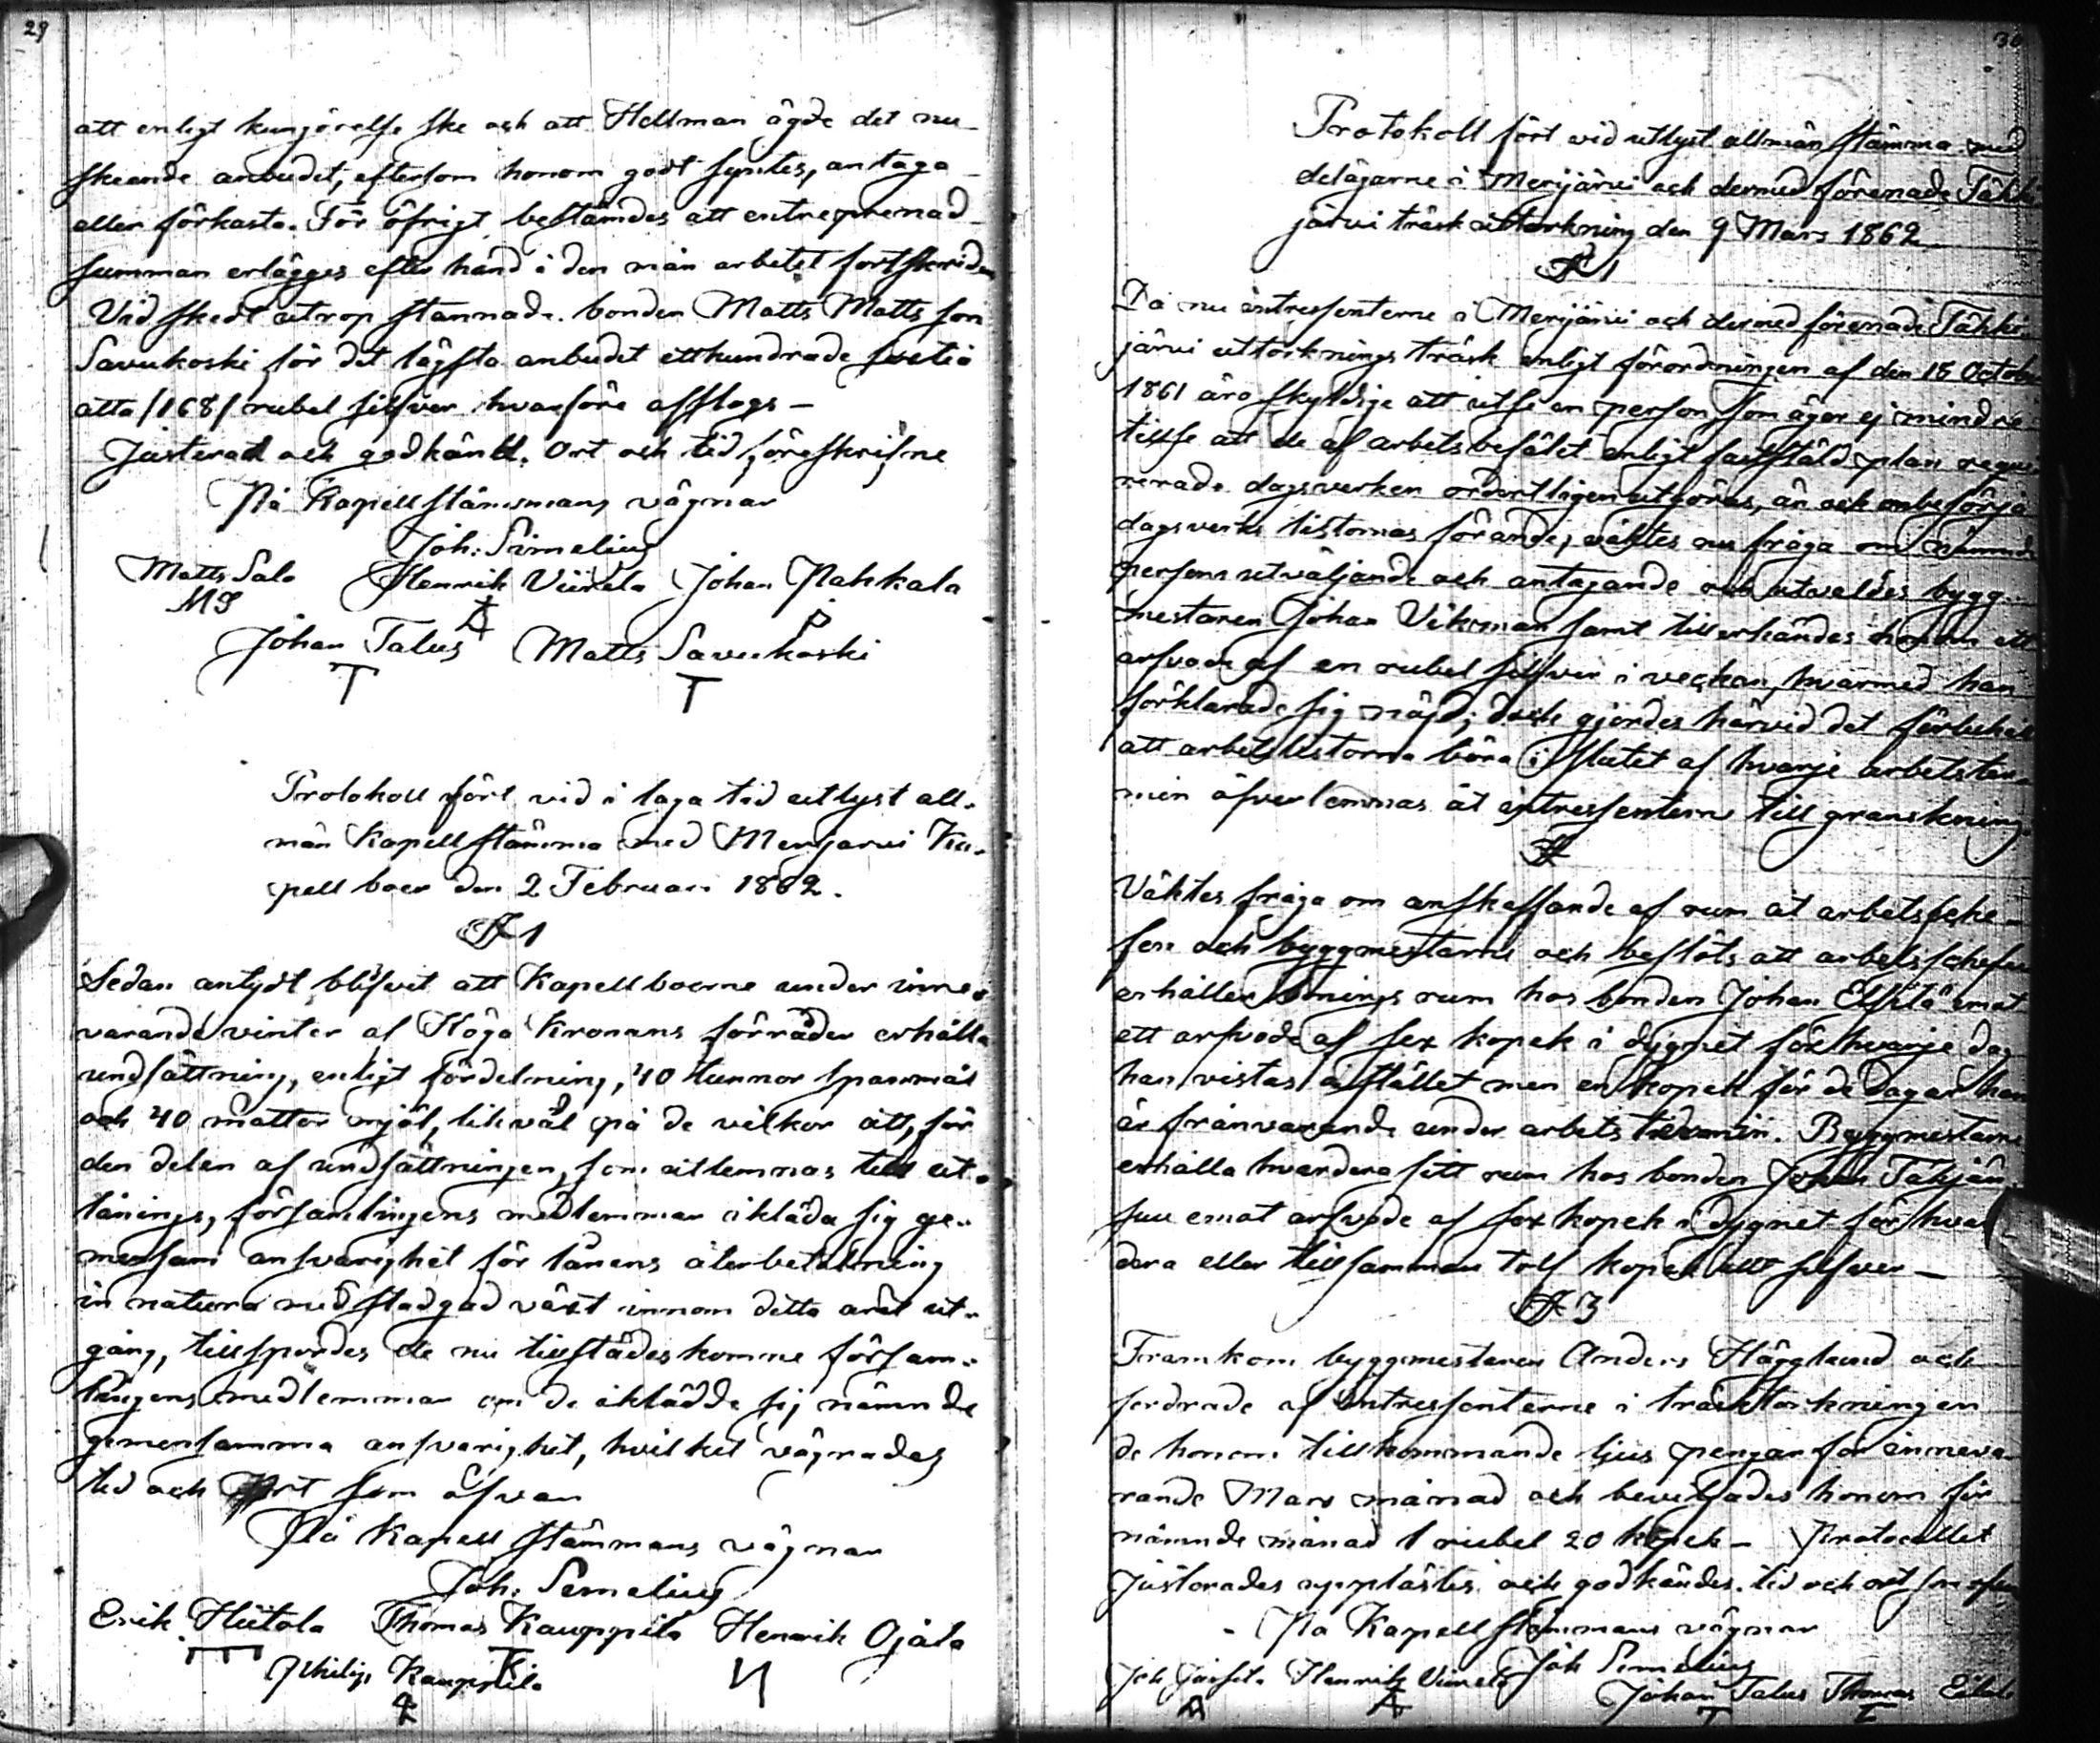 29
att enligt kungörelse ske och att Hellman ägde det nu
skeende anbudet, eftersom honom godt syntes, antaga
eller förkasta. För öfrigt bestämdes att entreprenad
summan erlägges efter hand i den mån arbetet fortskrider
Vid skedt utrop stannade bonden Matts Mattsson
Savukoski för det lägsta anbudet etthundrade sextio
åtta /168/ rubel silfver hvarföre afslogs –
Justerad och godkänd. Ort och tid föreskrifne
På Kapellstämmans vägnar
Joh: Simelius
Matts Salo Henrik Viirela Johan Pahkala
MS
Johan Talus Matts Savukoski
T T
Protokoll fört vid i laga tid utlyst all-
män Kapellstämma med Merijärvi Ka-
pell boer den 2 Februari 1862.
§ 1
Sedan antydt blifvit att Kapellboerne under inne-
varande vinter af Höga Kronans förråder erhålla
undsättning, enligt fördelning, 40 tunnor spannmål
och 40 mattor mjöl, likväl på de vilkor att, för
den delen af undsättningen, som utlemnas till ut-
lånings, församlingens medlemmar ikläda sig ge-
mensam ansvarighet för lånens återbetalning
in natura med stadgad växt innom detta årets ut-
gång, tillspordes de nu tillstädeskomne försam-
lingens medlemmar om de iklädde sig nämnde
gemensamma ansvarighet, hvilket vägrades
tid och Ort som ofvan
På Kapell stämmans vägnar
Joh: Simelius
Erik Hiitola Thomas Kauppila Henrik Ojala
Philip Kauppila
30
Protokoll fört vid utlyst allmän stämma med
delägarne i Merijärvi och dermed förenade Tähki
järvi träsk uttorkning den 9 Mars 1862
§ 1
Då nu intressenterne i Merijärvi och dermed förenade Tähki
järvi uttorknings träsk enligt förordningen af den 18 October
1861 äro skyldige att utse en person som äger ej mindre
tillse att de af arbetsbefälet enligt fastställd plan requi
rerade dagsverken ordentligen utgöras, än och ombesörja
dagsverks listornas förande, väktes nu fråga om nämnde
persons utväljande och antagande och utvaldes bygg-
mestaren Johan Vikman samt tillerkändes honom ett
arfvode af en rubel silfver i veckan, hvarmed han
förklarade sig nöjd; dock gjordes härvid det förbehåll
att arbetslistorna böra i slutet af hvarje arbetster-
min öfverlemnas åt intressenterne till granskning.
§
Väktes fråga om anskaffande af rum åt arbetsche-
fen och byggmestarne och beslöts att arbetschefen
erhåller bonings rum hos bonden Johan emot
ett arfvode af sex kopek i dygnet för hvarje dag
han vistas å stället men en kopek för de dagar han
är frånvarande under arbets terminen. Byggmestarne
erhålla hvardera sitt rum hos bonden Johan
emot arfvode af sex kopek i dygnet för hvar
dera eller tillsamman tolf kopek allt silfver –
§ 3
Framkom byggmestaren Anders Hägglund och
fordrade af intressenterne i träsktorkningen
de honom tillkommande ljus pengar för inneva
rande Mars månad och beviljades honom för
nämnde månad 1 rubel 20 kopek – Protocollet
Justerades upplästes och godkändes. tid och ort som ofvan
På Kapell stämmans vägnar
Joh Simelius
Henrik Viirela Johan Talus Thomas